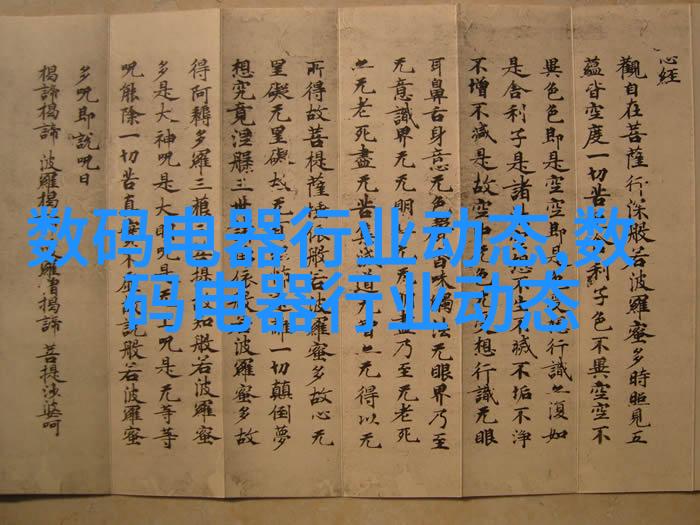 数码电器行业动态,数
码电器行业动态
心经
觀自在菩薩行深般若波羅蜜多時照見五
蘊皆空度一切苦利子色不異空空不
異色色即是空空即是行識亦復如
是舍利子是諸不生不滅不垢不淨
不增不減是故空中无色想行識无眼
耳鼻舌身意无色聲香味觸法无眼界乃至
无意識界无无明盡乃至无老死
亦无老死盡无苦集滅道无亦无得以无
所得故菩提薩埵依般若波羅蜜多故心无
罣礙无罣礙故无離一切顛倒夢
想究竟涅槃三世依般若波羅蜜多故
得阿耨多羅三藐菩提故知般若波羅蜜
多是大神呪是大明呪是上呪是无等等
呪能除一切苦真實不說般若波羅蜜
多呪即說呪曰
揭諦揭諦 波羅揭羅僧揭諦 菩提娑婆呵